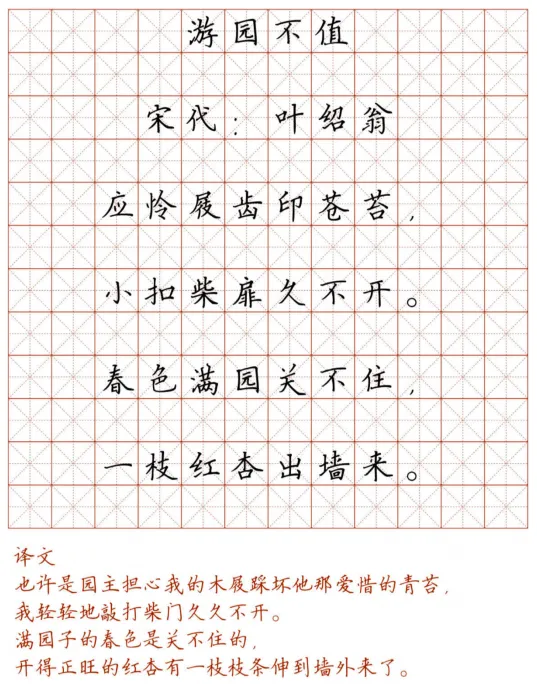 游园不值
宋代：叶绍翁
应怜屐齿印苍苔，
小扣柴扉久不开。
春色满园关不住，
一枝红杏出墙来。
译文
也许是园主担心我的木屐踩坏他那爱惜的青苔，
我轻轻地敲打柴门久久不开。
满园子的春色是关不住的，
开得正旺的红杏有一枝枝条伸到墙外来了。